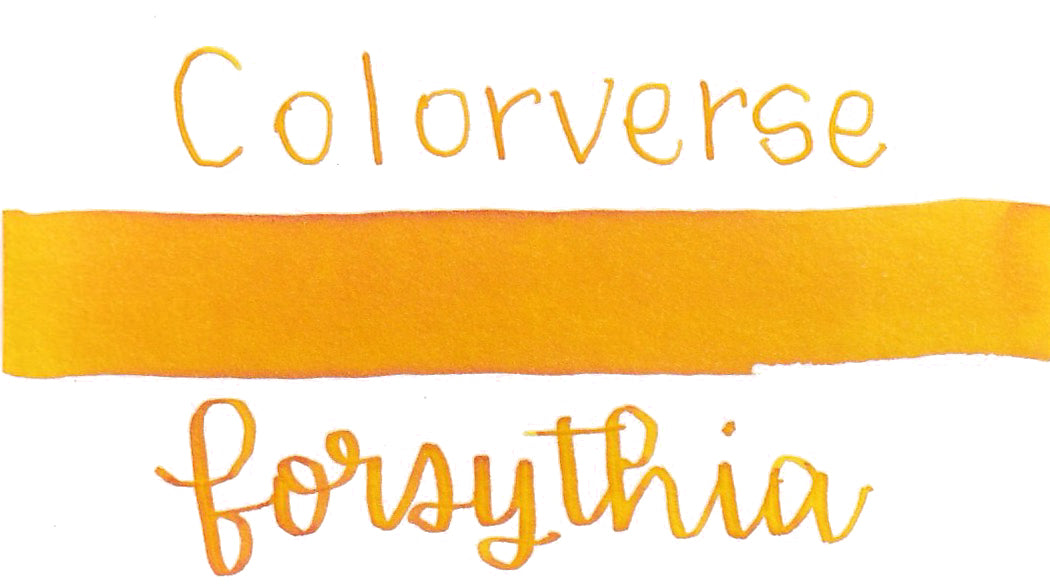 Colorverse
forsythia